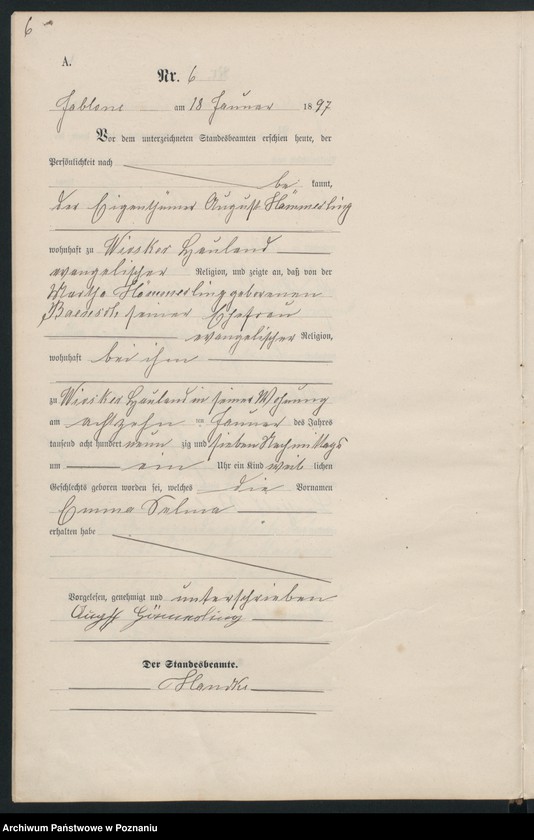 6
A.
Nr. 6
Jablone am 18 Januar 1897
Vor dem unterzeichneten Standesbeamten erschien heute, der
Persönlichkeit nach
be kannt,
der Eigenthümer August Hämmerling
wohnhaft zu Hauland
evangelischer Religion, und zeigte an, daß von der
Martha Hämmerling geborenen
seiner Ehefrau
evangelischer Religion,
wohnhaft bei ihm
zu Hauland in seiner Wohnung
am achtzehn ten Januar des Jahres
tausend acht hundert neun zig und sieben Nachmittags
um ein Uhr ein Kind weib lichen
Geschlechts geboren worden sei, welches die Vornamen
Emma Selma
erhalten habe
Vorgelesen, genehmigt und unterschrieben
August Hämmerling
Der Standesbeamte.
Archiwum Państwowe w Poznaniu